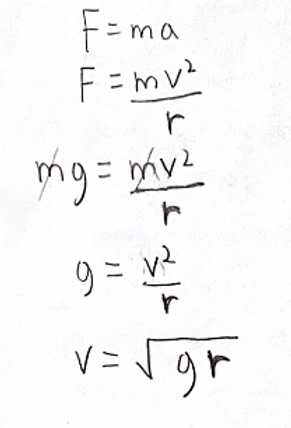 F = ma
F = mv²/r
mg = mv²/r
g = v²/r
v = √gr